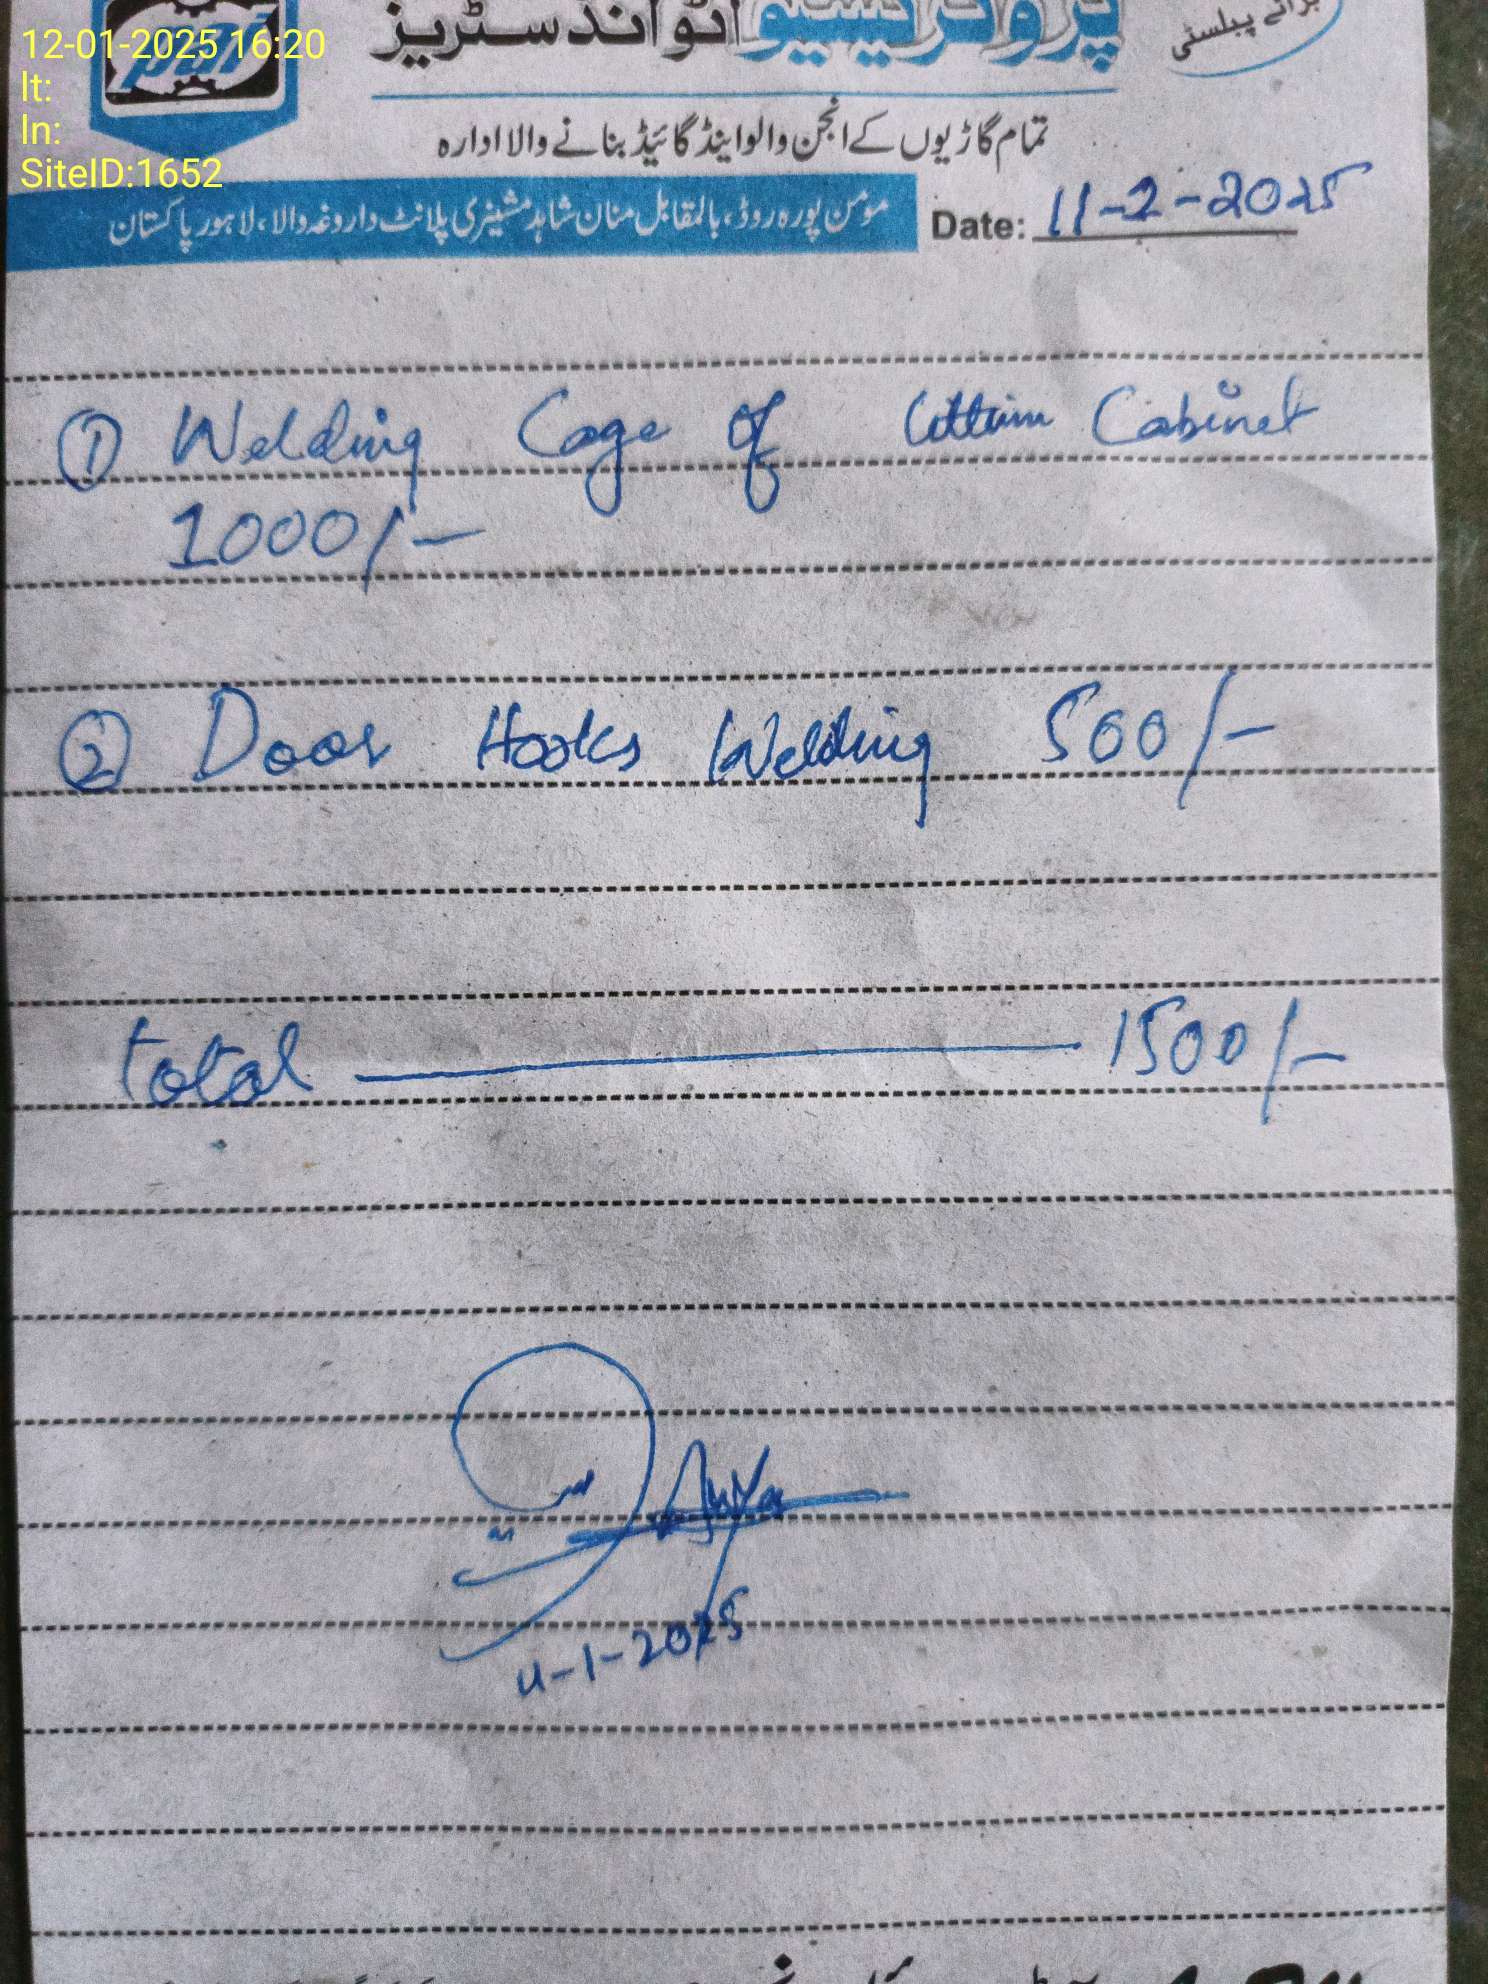 12-01-2025 16:20
lt:
ln:
SiteID:1652
pai
پروگریسیو آٹو انڈسٹریز
برائے پبلسٹی
تمام گاڑیوں کے انجن والو اینڈ گائیڈ بنانے والا ادارہ
مومن پورہ روڈ، بالمقابل منان شاہد مشینری پلانٹ داروغہ والا، لاہور پاکستان
Date: 11-2-2025
① Welding Cage of Cabinet
1000/-
② Door Hooks Welding 500/-
total 1500/-
11-1-2025